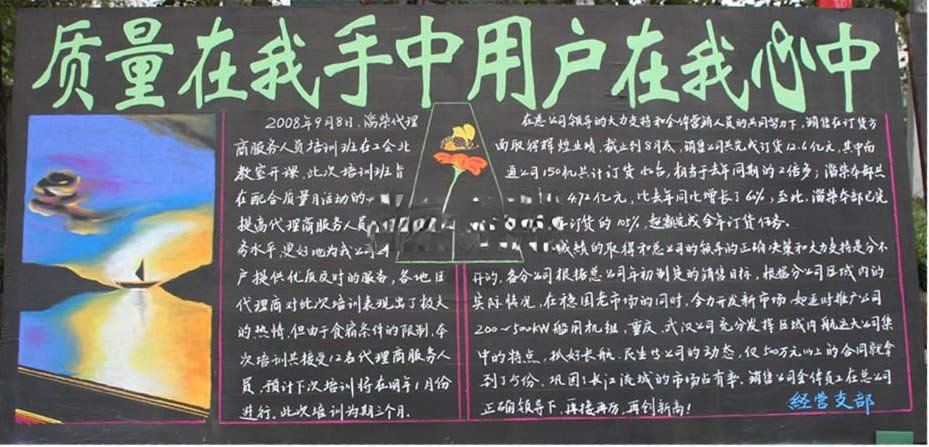 质量在我手中用户在我心中
2008年9月8日,淄柴代理
商服务人员培训班在工会北
教室开课,此次培训班旨
在配合质量月活动的
提高代理商服务人员
务水平,更好地为我公司
户提供优质及时的服务,各地区
代理商对此次培训表现出了极大
的热情,但由于食宿条件的限制,本
次培训共接受12名代理商服务人
员,预计下次培训将在明年1月份
进行,此次培训为期三个月.
在总公司领导的大力支持和全体营销人员的共同努力下,销售在订货方
面取得辉煌业绩,截止到8月太,销售公司共完成订货12.6亿元,其中南
通公司150机共计订货 台,相当于去年同期的2倍多;淄柴本部共
4.72亿元,比去年同比增长了60%,至此,淄柴本部已完
订货的105%,超额完成全年订货任务.
成绩的取得和总公司的领导的正确决策和大力支持是分不
开的,各分公司根据总公司年初制定的销售目标,根据分公司区域内的
实际情况,在稳固老市场的同时,全力开发新市场,如适时推广公司
200~500KW船用机组,重庆、武汉公司充分发挥区域内航运大公司集
中的特点,抓好长航、民生等公司的动态,仅500万元以上的合同就拿
到了5份,巩固了长江流域的市场占有率,销售公司全体员工在总公司
正确领导下,再接再厉,再创新高!
经营支部